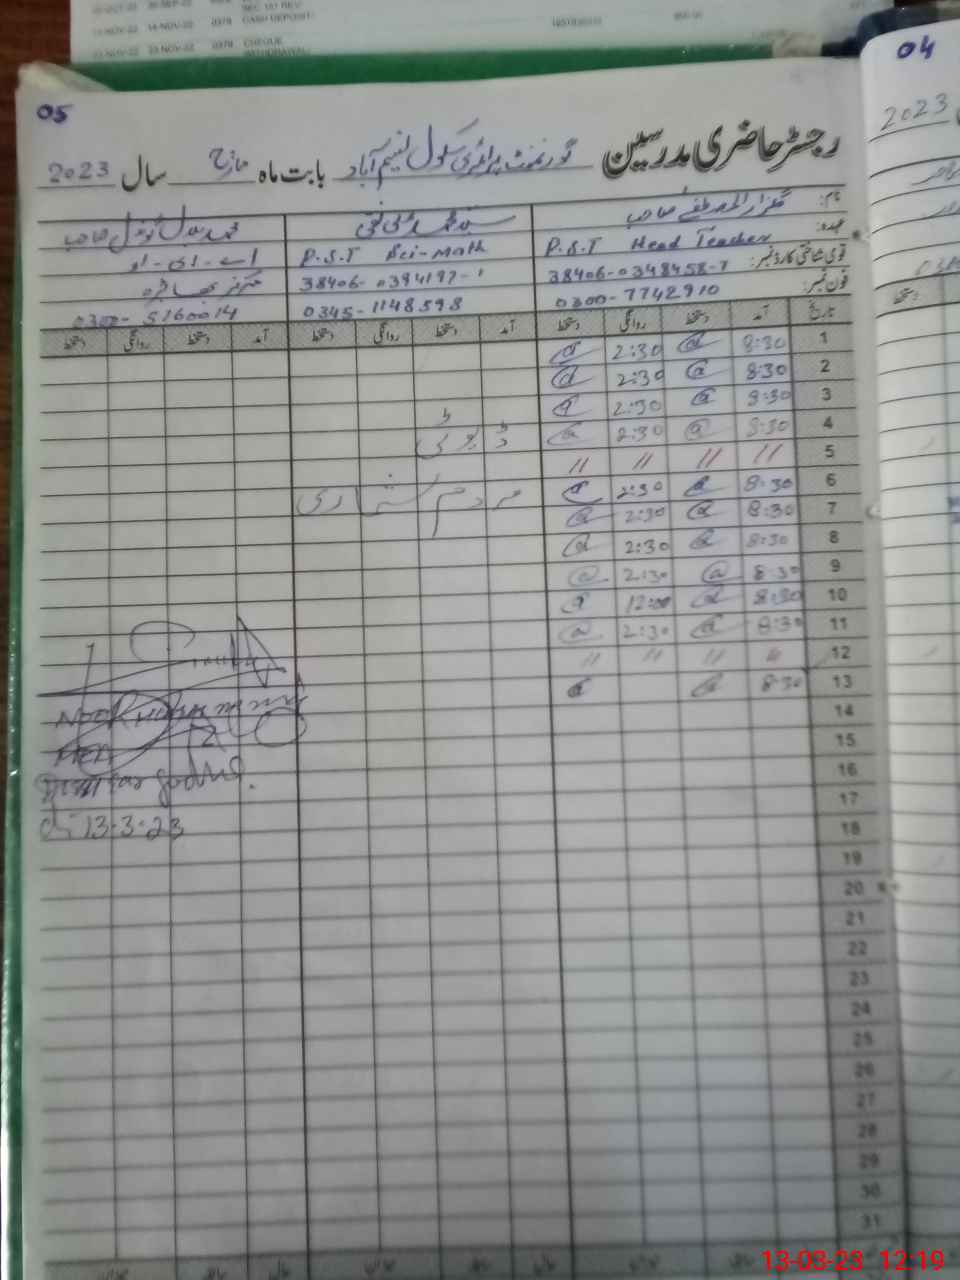 SEC 107 REV
14-NOV-22 2379 CASH DEPOSIT
23 NOV-22 2379 CHEQUE
WITHDRAWAL
04
2023
05
رجسٹر حاضری مدرسین گورنمنٹ پرائمری سکول نسیم آباد بابت ماہ مارچ سال 2023
نام: گلزار المصطفیٰ صاحب سید محمد علی نقی محمد بلال گوندل صاحب
عہدہ: P.S.T Head Teacher P.S.T Sci-math اے-ای-او
قومی شناختی کارڈ نمبر: 38406-0348458-7 38406-0394197-1 مرکز
فون نمبر: 0300-7742910 0345-1148598 0300-5160014
تاریخ آمد دستخط روانگی دستخط آمد دستخط روانگی دستخط آمد دستخط روانگی دستخط
1 8:30 2:30
2 8:30 2:30
3 8:30 2:30
4 8:30 2:30 ڈیوٹی
5 // // // //
6 8:30 2:30 مردم شماری
7 8:30 2:30
8 8:30 2:30
9 8:30 2:30
10 8:30 12:00
11 8:30 2:30
12 // // // //
13 8:30
14
15
16
17
18
19
20
21
22
23
24
25
26
27
28
29
30
31
13-3-23
13-03-23 12:19